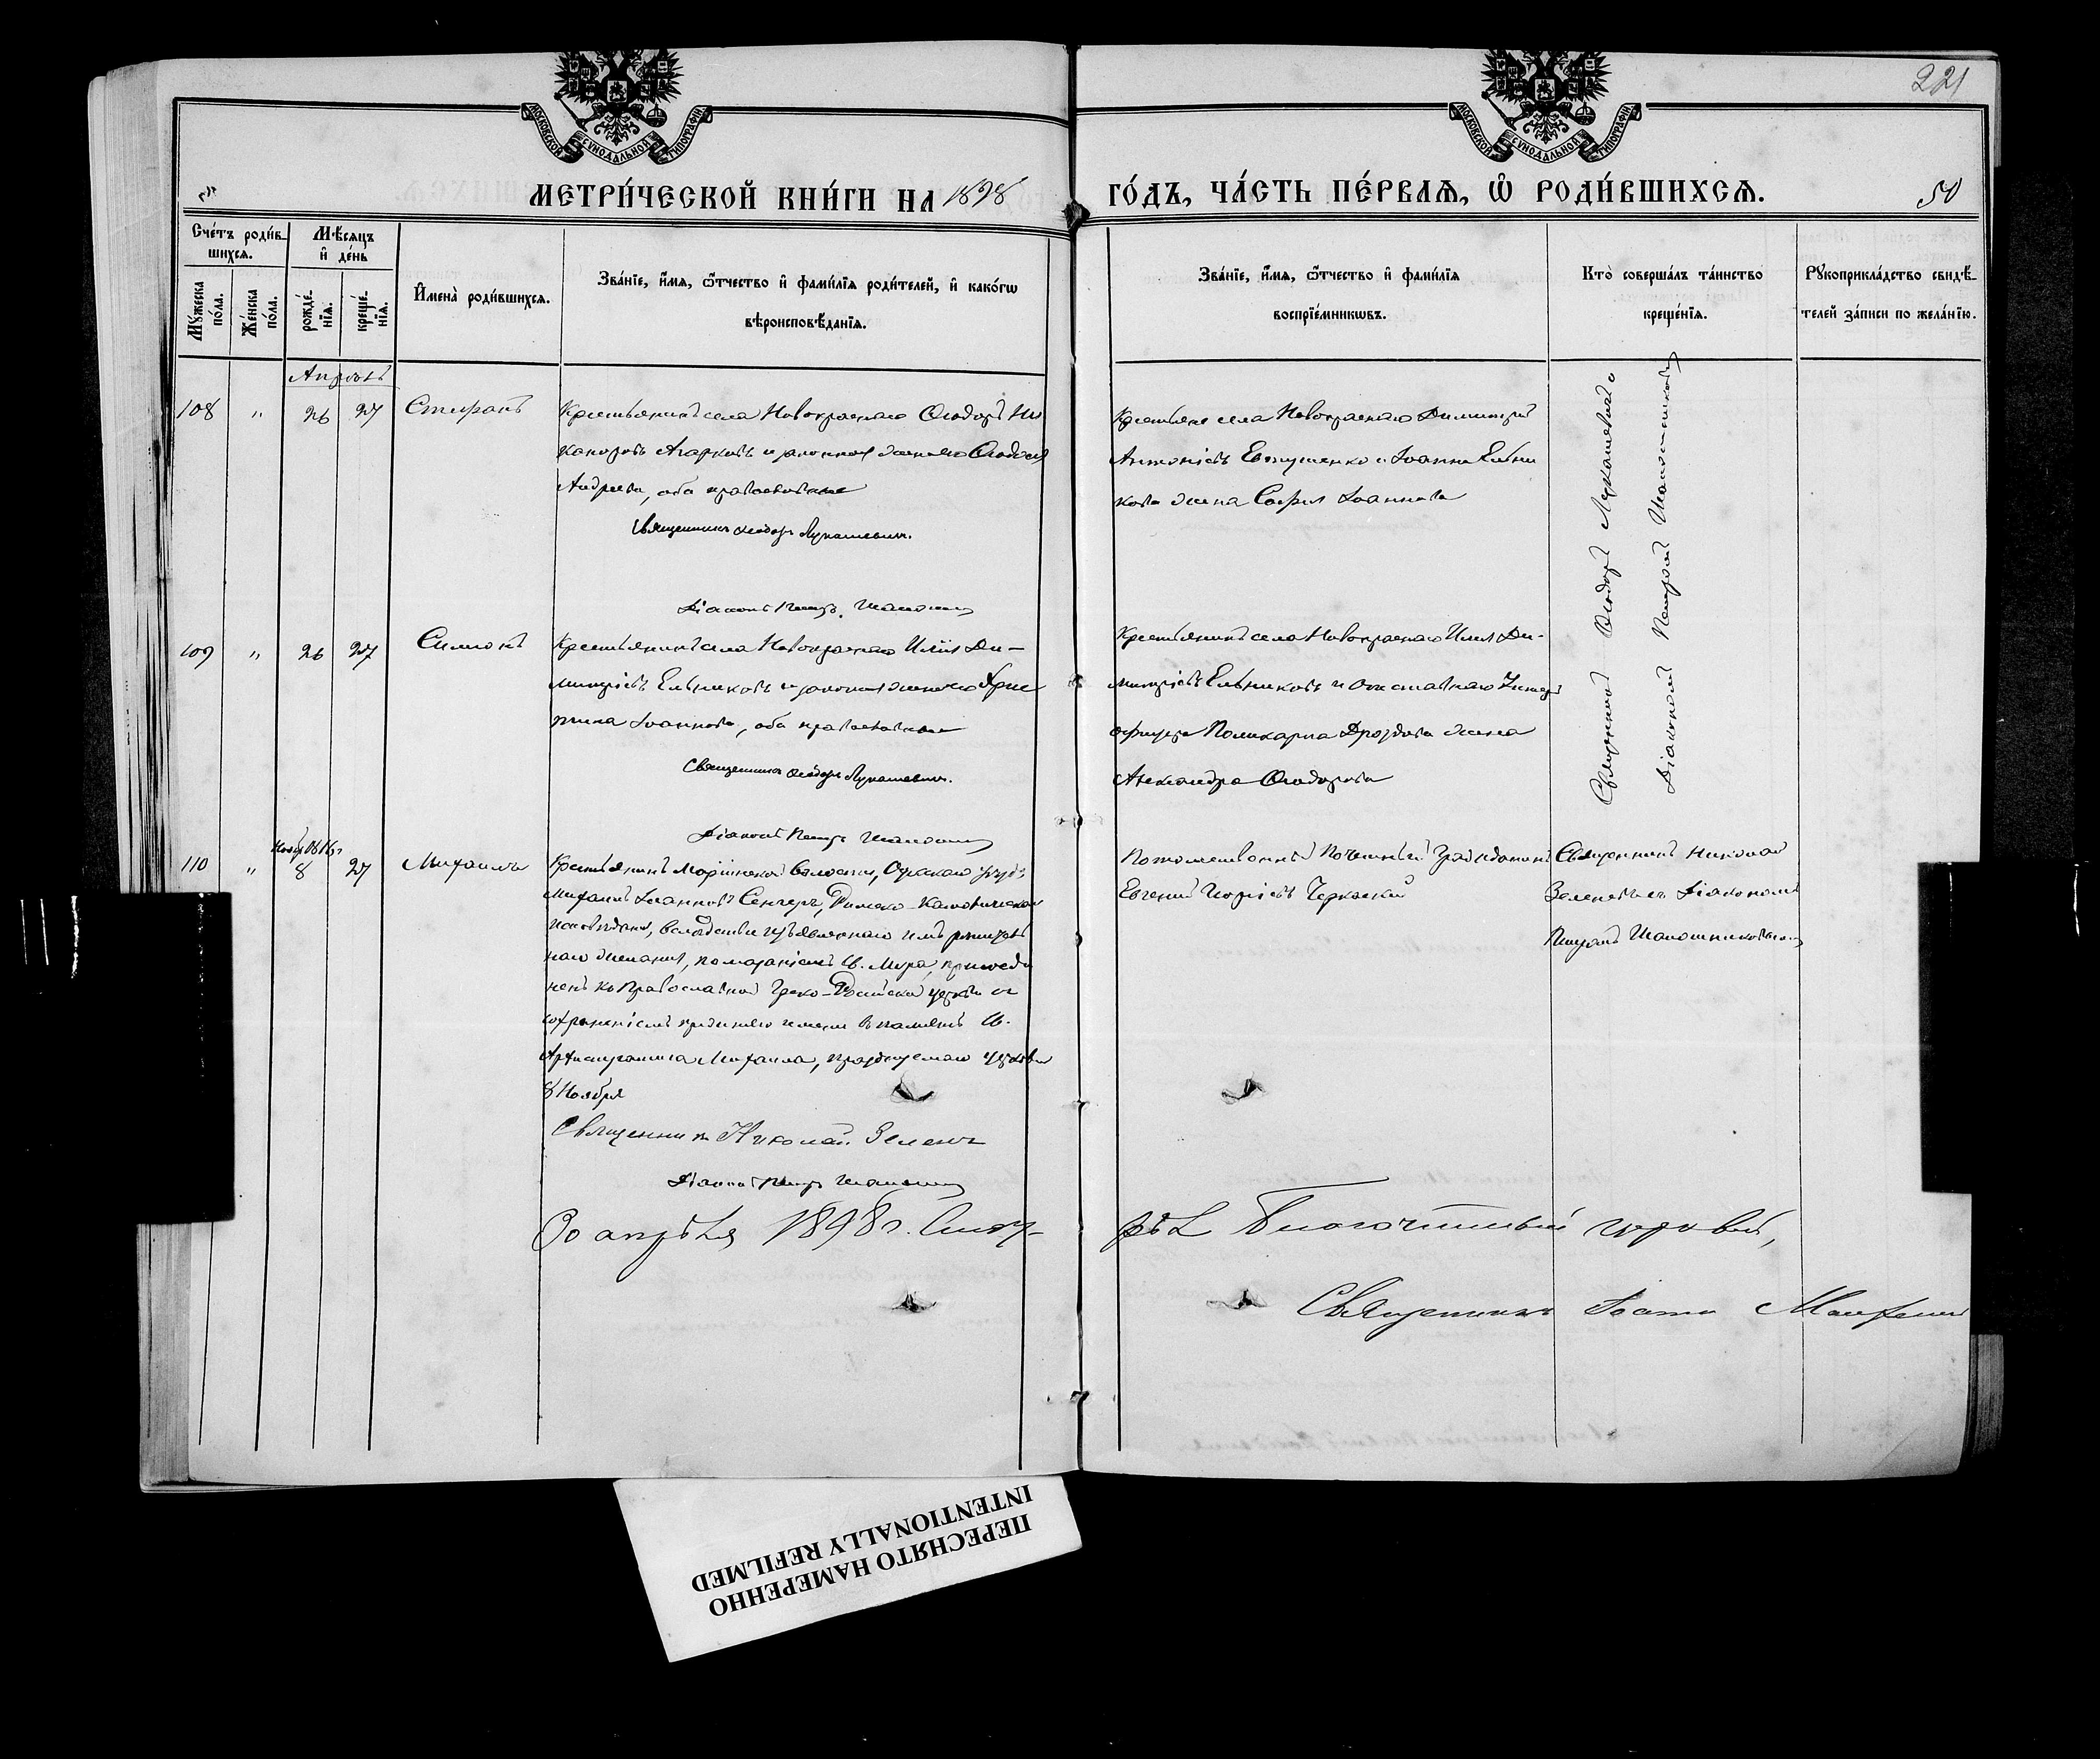 221
МОСКОВСКОЙ СУНОДАЛЬНОЙ ТИПОГРАФІИ
МОСКОВСКОЙ СУНОДАЛЬНОЙ ТИПОГРАФІИ
МЕТРИ́ЧЕСКОЙ КНИ́ГИ НА 1898 ГО́ДЪ, ЧА́СТЬ ПЕ́РВАѦ, Ѡ РОДИ́ВШИХСѦ. 50
Сче́тъ роди́в-
шихсѧ.
Мꙋ́жеска
по́ла.
Же́нска
по́ла.
Мѣ́сѧцъ
и҆ де́нь
рожде́-
нїѧ.
креще́-
нїѧ.
И҆мена̀ роди́вшихсѧ.
Зва́нїе, и҆́мѧ, ѻ҆́тчество и҆ фами́лїѧ роди́телей, и҆ како́гѡ
вѣроисповѣ́данїѧ.
Зва́нїе, и҆́мѧ, ѻ҆́тчество и҆ фами́лїѧ
воспрїе́мникѡвъ.
Кто̀ соверша́лъ та́инство
креще́нїѧ.
Рꙋкоприкла́дство свидѣ́-
телей за́писи по жела́нїю.
Апрѣль
108 " 26 27 Стефанъ
Крестьянинъ села Новокраснаго Ѳеодоръ Ни
каноровъ Агарковъ и законная жена его Ѳеодосія
Андреева, оба православные
Священникъ Ѳеодоръ Лукашевичъ.
Діаконъ Петръ
Крестьяне села Новокраснаго Димитрій
Антоніевъ Евтушенко и Іоанна Ельни
кова жена Софія Іоаннова
Священникъ Ѳеодоръ Лукашевичъ с
Діакономъ Петромъ Шапошниковымъ
109 " 26 27 Симеонъ
Крестьянинъ села Новокраснаго Илія Ди-
митріевъ Ельниковъ и законная жена его Хрис
тина Іоаннова, оба православные
Священникъ Ѳеодоръ Лукашевичъ.
Діаконъ Петръ
Крестьянинъ села Новокраснаго Илія Ди-
митріевъ Ельниковъ и отставнаго Унтеръ
офицера Поликарпа Дроздова жена
Александра Ѳеодорова
110 " 8 27 Михаилъ
Крестьянинъ Маріинской волости,
Михаилъ Іоанновъ Сенчеръ, Римско-Католическаго
исповѣданія, вслѣдствіе изъявленнаго имъ
наго желанія, помазаніемъ Св. Мѵра, присоеди
ненъ къ Православной Греко-Россійской церкви съ
сохраненіемъ прежняго имени въ память Св.
Архистратига Михаила, празднуемаго церковью
8 Ноября
Священникъ Николай Зеленъ
Діаконъ Петръ
Потомственный Почетный Гражданинъ
Евгеній Черкаскій
Священникъ Николай
Діакономъ
Петромъ Шапошниковымъ
30 апрѣля 1898 г. Смот-
рѣлъ Благочинный церквей,
Священникъ Іоаннъ
ПЕРЕСНЯТО НАМЕРЕННО
INTENTIONALLY REFILMED